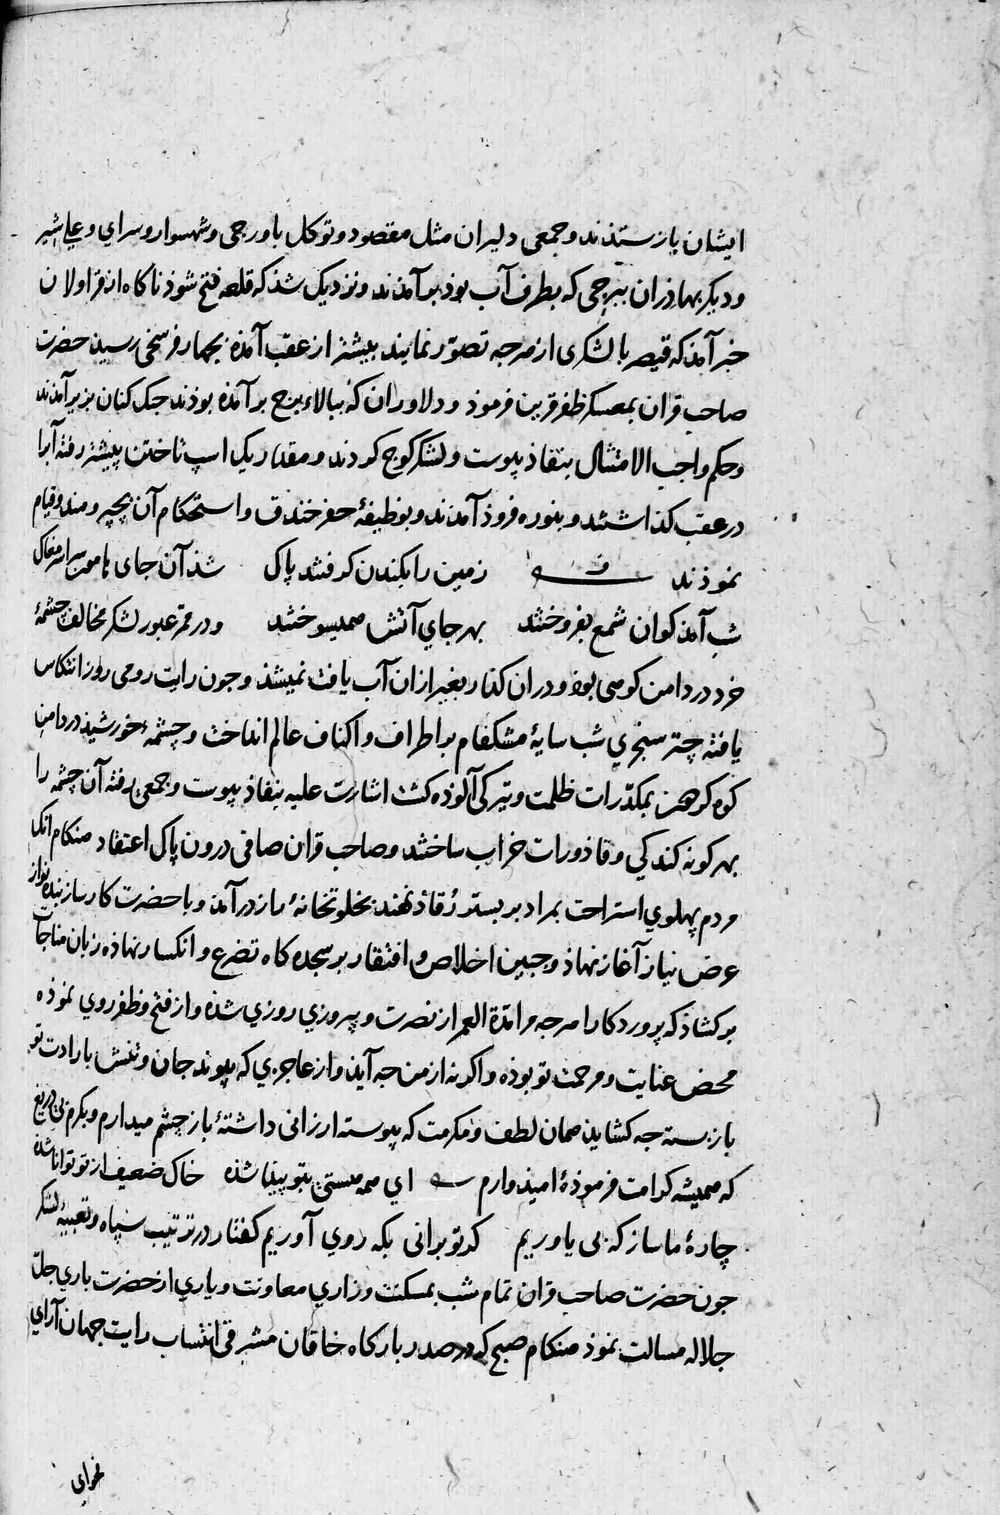 ایشان بازستدند و جمعی دلیران مثل مقصود و توکل باورجی و شهسوار و سرای و علی شیر
و دیکر بهادران ببرجی که بطرف آب بود برآمدند و نزدیک شد که قلعه فتح شود ناکاه از قراولان
خبر آمد که قیصر با لشکری از هرجه تصور نمایند بیشتر از عقب آمده بجهار فرسخی رسید حضرت
صاحب قران بمعسکر ظفر قرین فرمود و دلاوران که ببالاء برج برآمده بودند جنک کنان بزیر آمدند
و حکم واجب الامتثال بنفاذ پیوست و لشکر کوج کردند و مقدار یک اسپ تاختن پیشتر رفته آبرا
در عقب کذاشتند و بنوره فروذ آمدند و بوظیفهٔ حفر خندق و استحکام آن بچپر و مندو قیام
نمودند زمین را بکندن کرفتند پاک شذ آن جای هامون سراسر مغاک
شب آمذ کوان شمع بفروختند بهر جای آتش همیسوختند و در ممر عبور لشکر مخالف چشمهٔ
خرد در دامن کوهی بوذ و دران کنار بغیر ازان آب یافت نمیشذ و جون رایت رومی روز انتکاس
یافته چتر سنجری شب سایهٔ مشکفام بر اطراف و اکناف عالم انداخت و چشمهٔ خورشید در دامن
کوه کرهن بمکدّرات ظلمت و تیرکی آلوده کشت اشارت علیه بنفاذ پیوست و جمعی رفته آن چشمه را
بهر کونه کندکی و قاذورات خراب ساختند و صاحب قران صافی درون پاک اعتقاد هنکام آنک
مردم پهلوی استراحت بمراد بر بستر رقاذ نهند بخلوتخانهٔ راز درآمد و با حضرت کارساز بنده نواز
عرض نیاز آغاز نهاذ و جبین اخلاص و افتقار بر سجده کاه تضرع و انکسار نهاذه زبان مناجات
برکشاذ که پروردکارا هرجه مرا مدة العمر از نصرت و پیروزی روزی شذه و از فتح و ظفر روی نموذه
محض عنایت و مرحمت تو بوذه و اکرنه از من جه آید و از عاجزی که پیوند جان و تنش بارادت تو
بازبسته جه کشاید همان لطف و مکرمت که پیوسته ارزانی داشتهٔ باز چشم میدارم و بکرم بی دریغ
که همیشه کرامت فرمودهٔ امیذوارم ای همه هستی بتو پیدا شذه خاک ضعیف از تو توانا شده
چارهٔ ما ساز که بی یاوریم کر تو برانی بکه روی آوریم کفتار در ترتیب سپاه و تعبیهٔ لشکر
جون حضرت صاحب قران تمام شب بمسکنت و زاری معاونت و یاری از حضرت باری جلّ
جلاله مسالت نموذ هنکام صبح که در صدر بارکاه خاقان مشرقی انتساب رایت جهان آرای